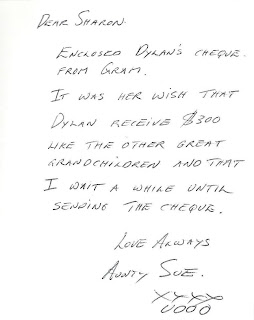 DEAR SHARON.
ENCLOSED DYLAN'S CHEQUE.
FROM GRAM.
IT WAS HER WISH THAT
DYLAN RECEIVE $300
LIKE THE OTHER GREAT
GRANDCHILDREN AND THAT
I WAIT A WHILE UNTIL
SENDING THE CHEQUE.
LOVE ALWAYS
AUNTY SUE.
XXXX
OOOO